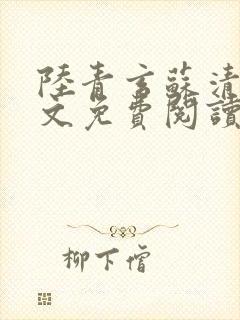 陸青言蘇清
文免費閱讀
柳下僧